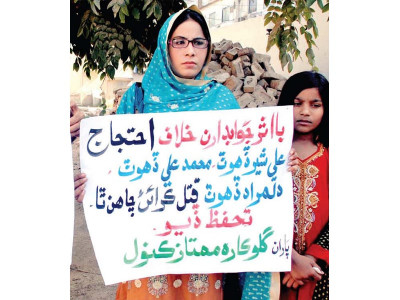 بااثر جوابدارن خلاف احتجاج
علي شير ڏهوٽ، محمد علي ڏهوٽ،
دلمراد ڏهوٽ قتل ڪرائڻ چاهن ٿا.
تحفظ ڏيو.
پاران گلوڪاره ممتاز ڪنول